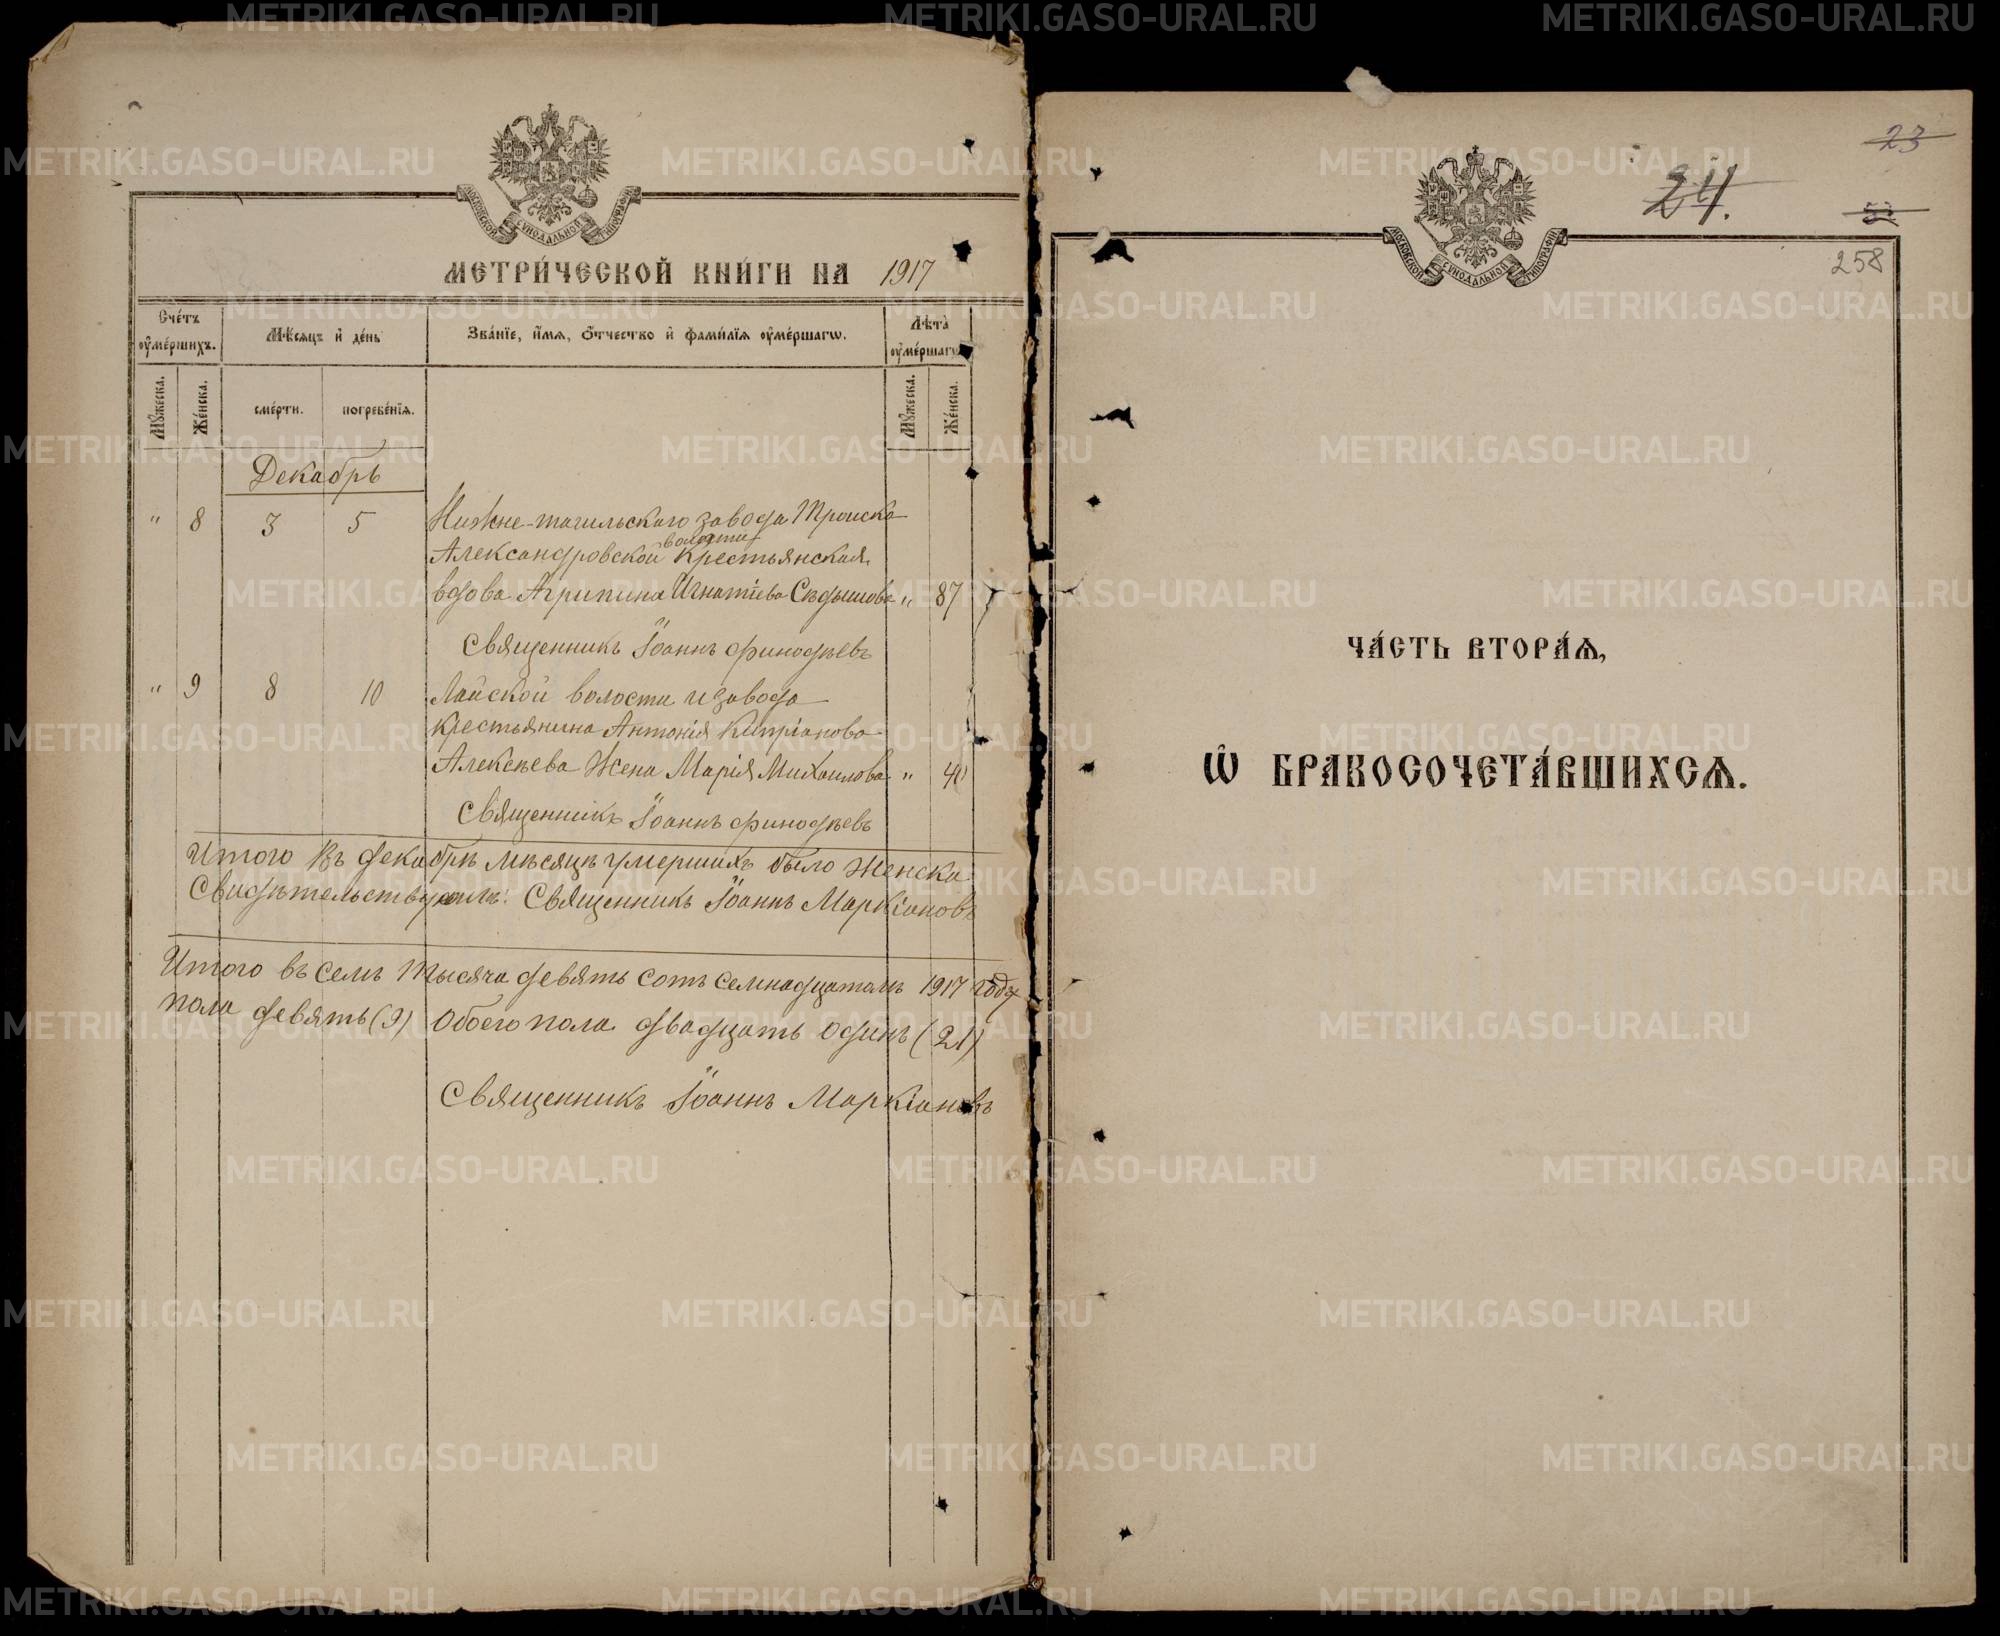 МОСКОВСКОЙ СѴНОДАЛЬНОЙ ТИПОГРАФІИ
МЕТРИ́ЧЕСКОЙ КНИ́ГИ НА 1917
Сче́тъ ᲂу҆ме́ршихъ.
Мѣ́сяцъ и҆ де́нь
Зва́нїе, и҆́мѧ, ѻ҆́тчество и҆ фами́лїѧ ᲂу҆ме́ршагѡ.
Лѣта̀ ᲂу҆ме́ршагѡ
Мꙋ́жеска.
Же́нска.
сме́рти.
погребе́нїѧ.
Мꙋ́жеска.
Же́нска.
Декабрь
" 8 3 5 Нижне-тагильскаго завода Троиско
Александровской волости Крестьянская
вдова Агрипина Игнатіева Сѣдышова " 87
Священникъ Іоаннъ Финодѣевъ
" 9 8 10 Лайской волости и завода
крестьянина Антонія Кипріанова
Алексѣева Жена Марія Михаилова " 40
Священникъ Іоаннъ Финодѣевъ
Итого въ декабрѣ мѣсяцѣ умершихъ было Женска
Свидѣтельствуемъ: Священникъ Іоаннъ Маркіановъ
Итого въ семъ тысяча девять сотъ семнадцатомъ 1917 году
пола девять (9) Обоего пола двадцать одинъ (21)
Священникъ Іоаннъ Маркіановъ
23
24.
258
МОСКОВСКОЙ СѴНОДАЛЬНОЙ ТИПОГРАФІИ
ЧА́СТЬ ВТОРА́Ѧ,
Ѽ БРАКОСОЧЕТА́ВШИХСѦ.
METRIKI.GASO-URAL.RU